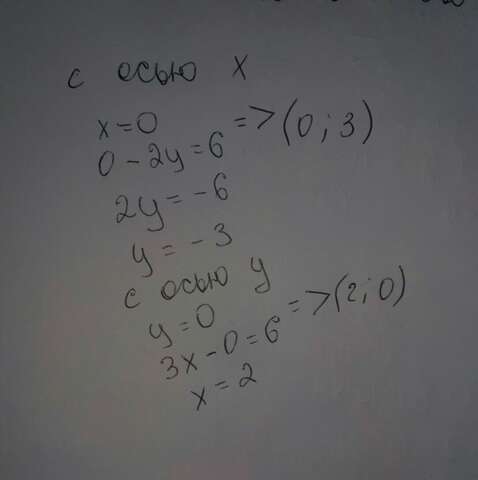 с осью x
x=0
0-2y=6 => (0; 3)
2y=-6
y=-3
с осью y
y=0
3x-0=6 => (2; 0)
x=2